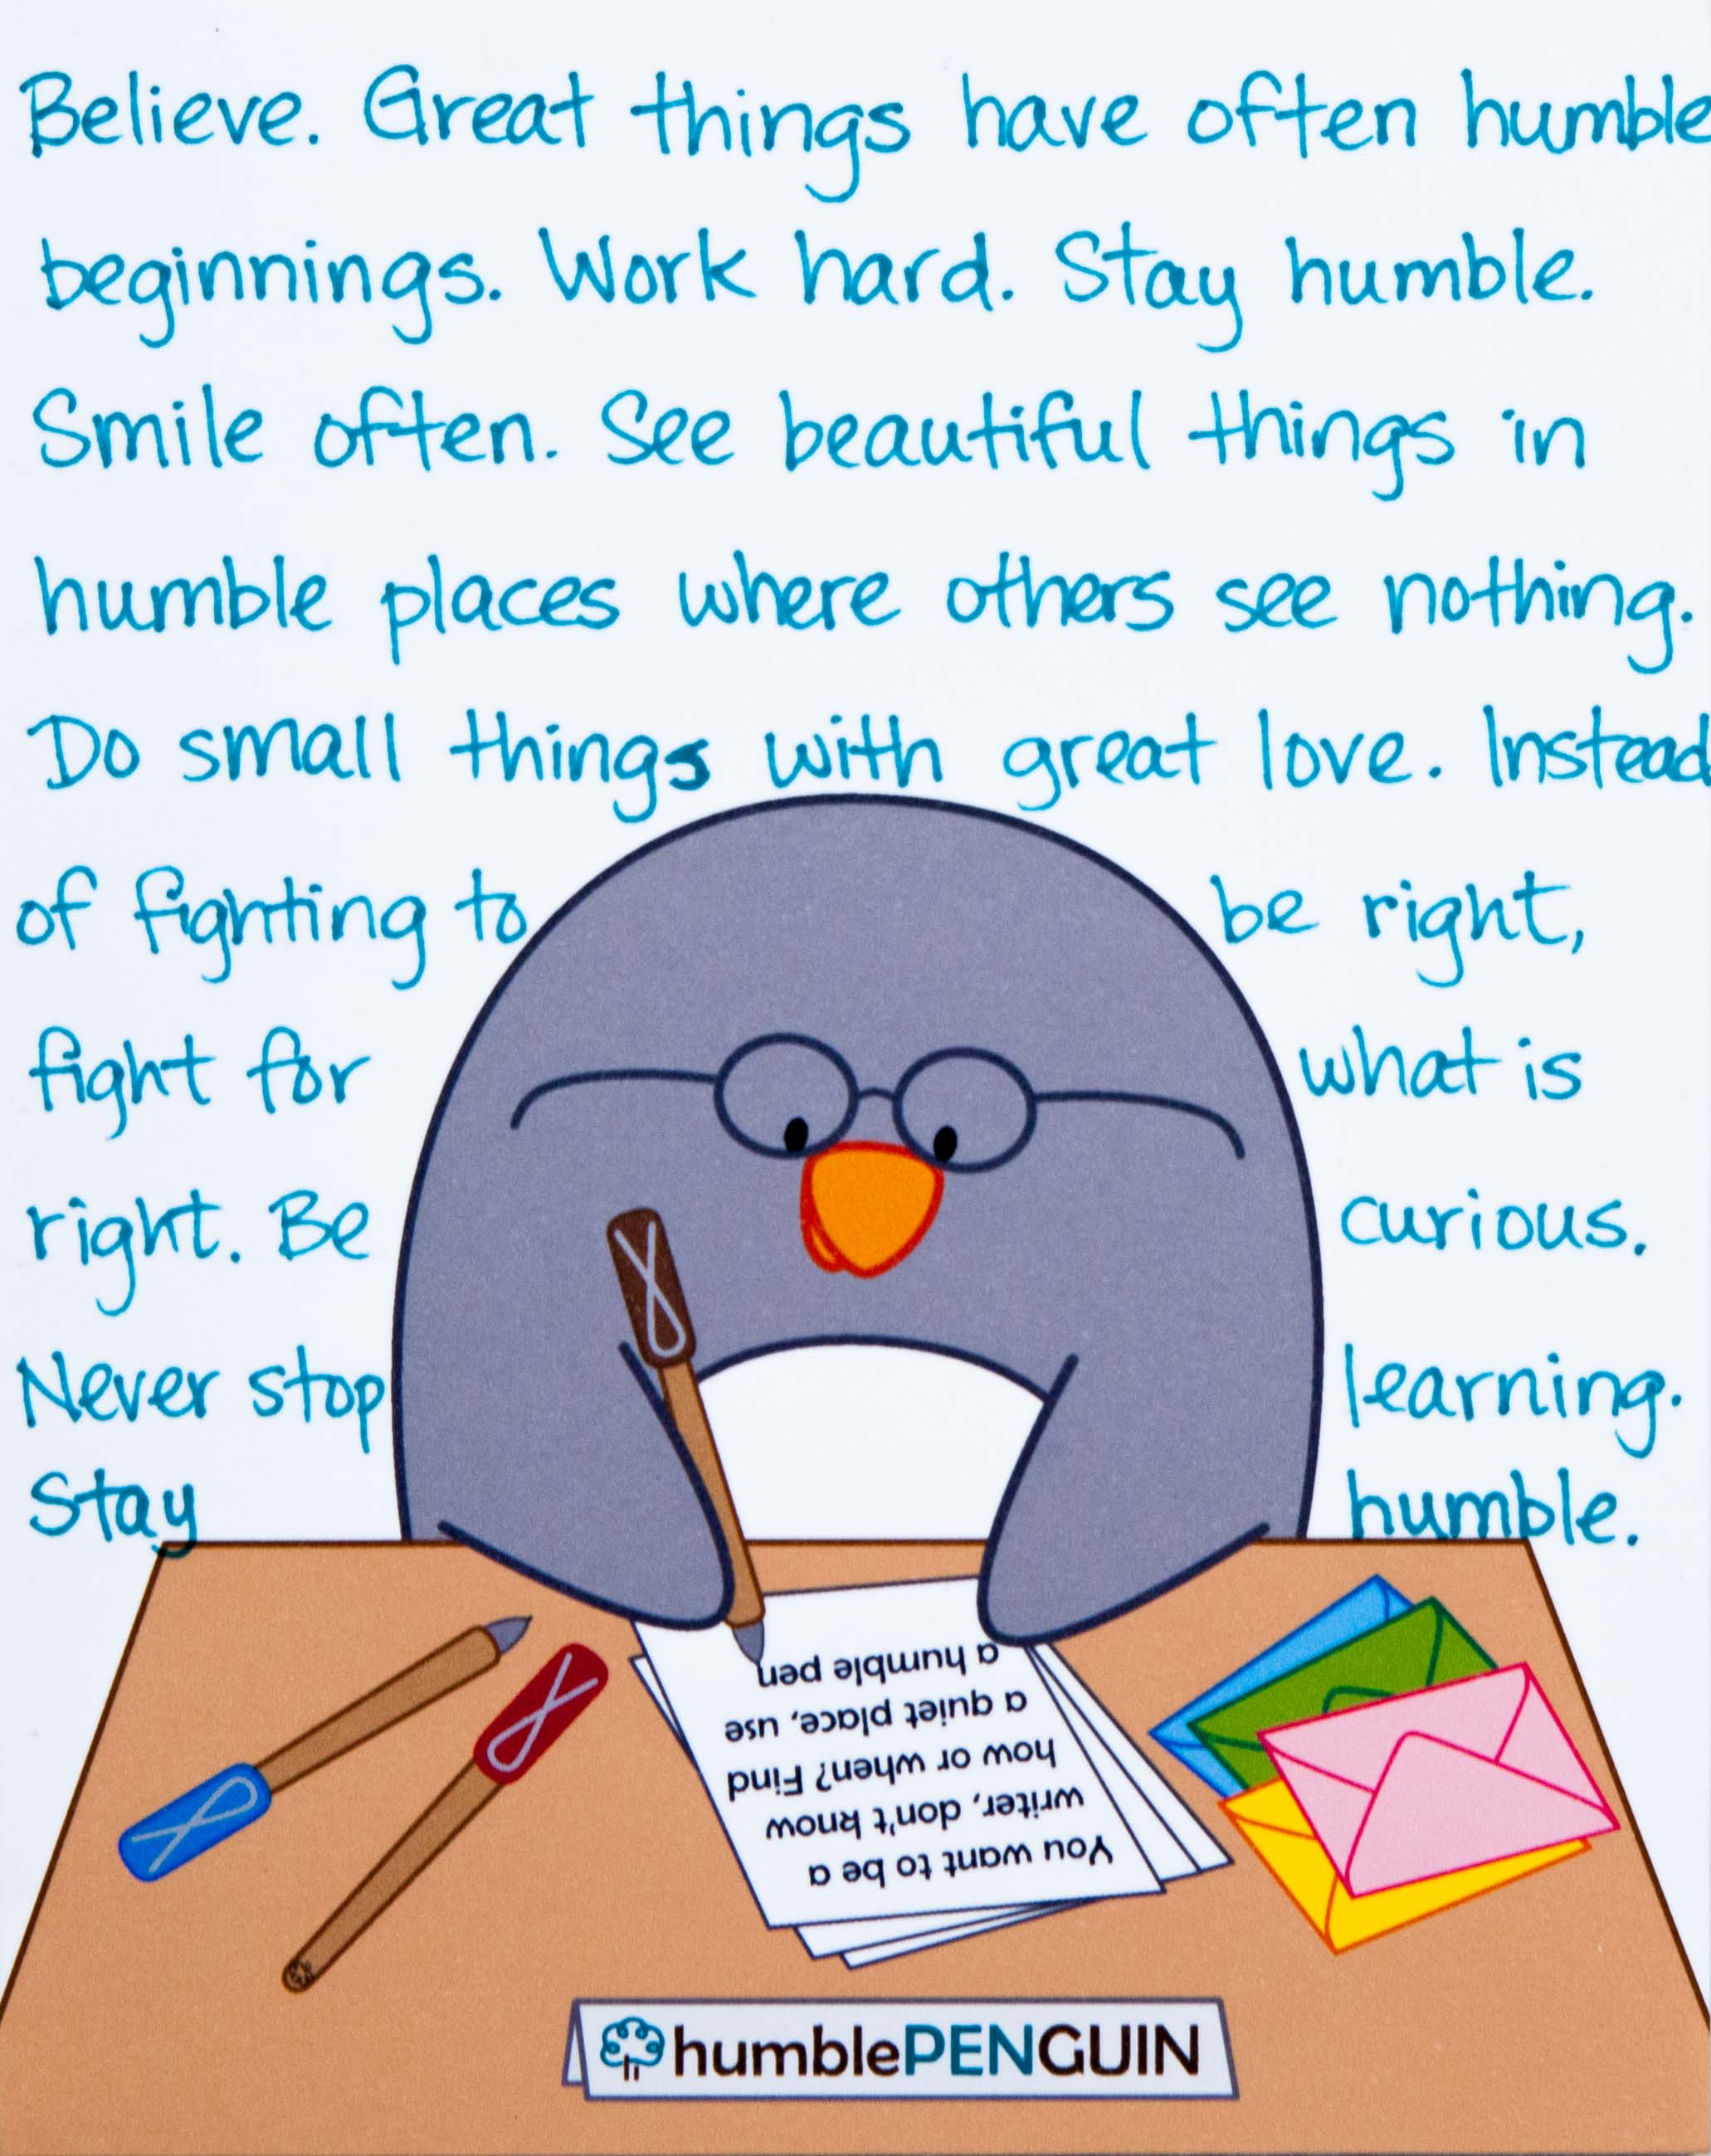 Believe. Great things have often humble
beginnings. Work hard. Stay humble.
Smile often. See beautiful things in
humble places where others see nothing.
Do small things with great love. Instead
of fighting to be right,
fight for what is
right. Be curious.
Never stop learning.
Stay humble.
You want to be a
writer, don't know
how or when? Find
a quiet place, use
a humble pen
humblePENGUIN